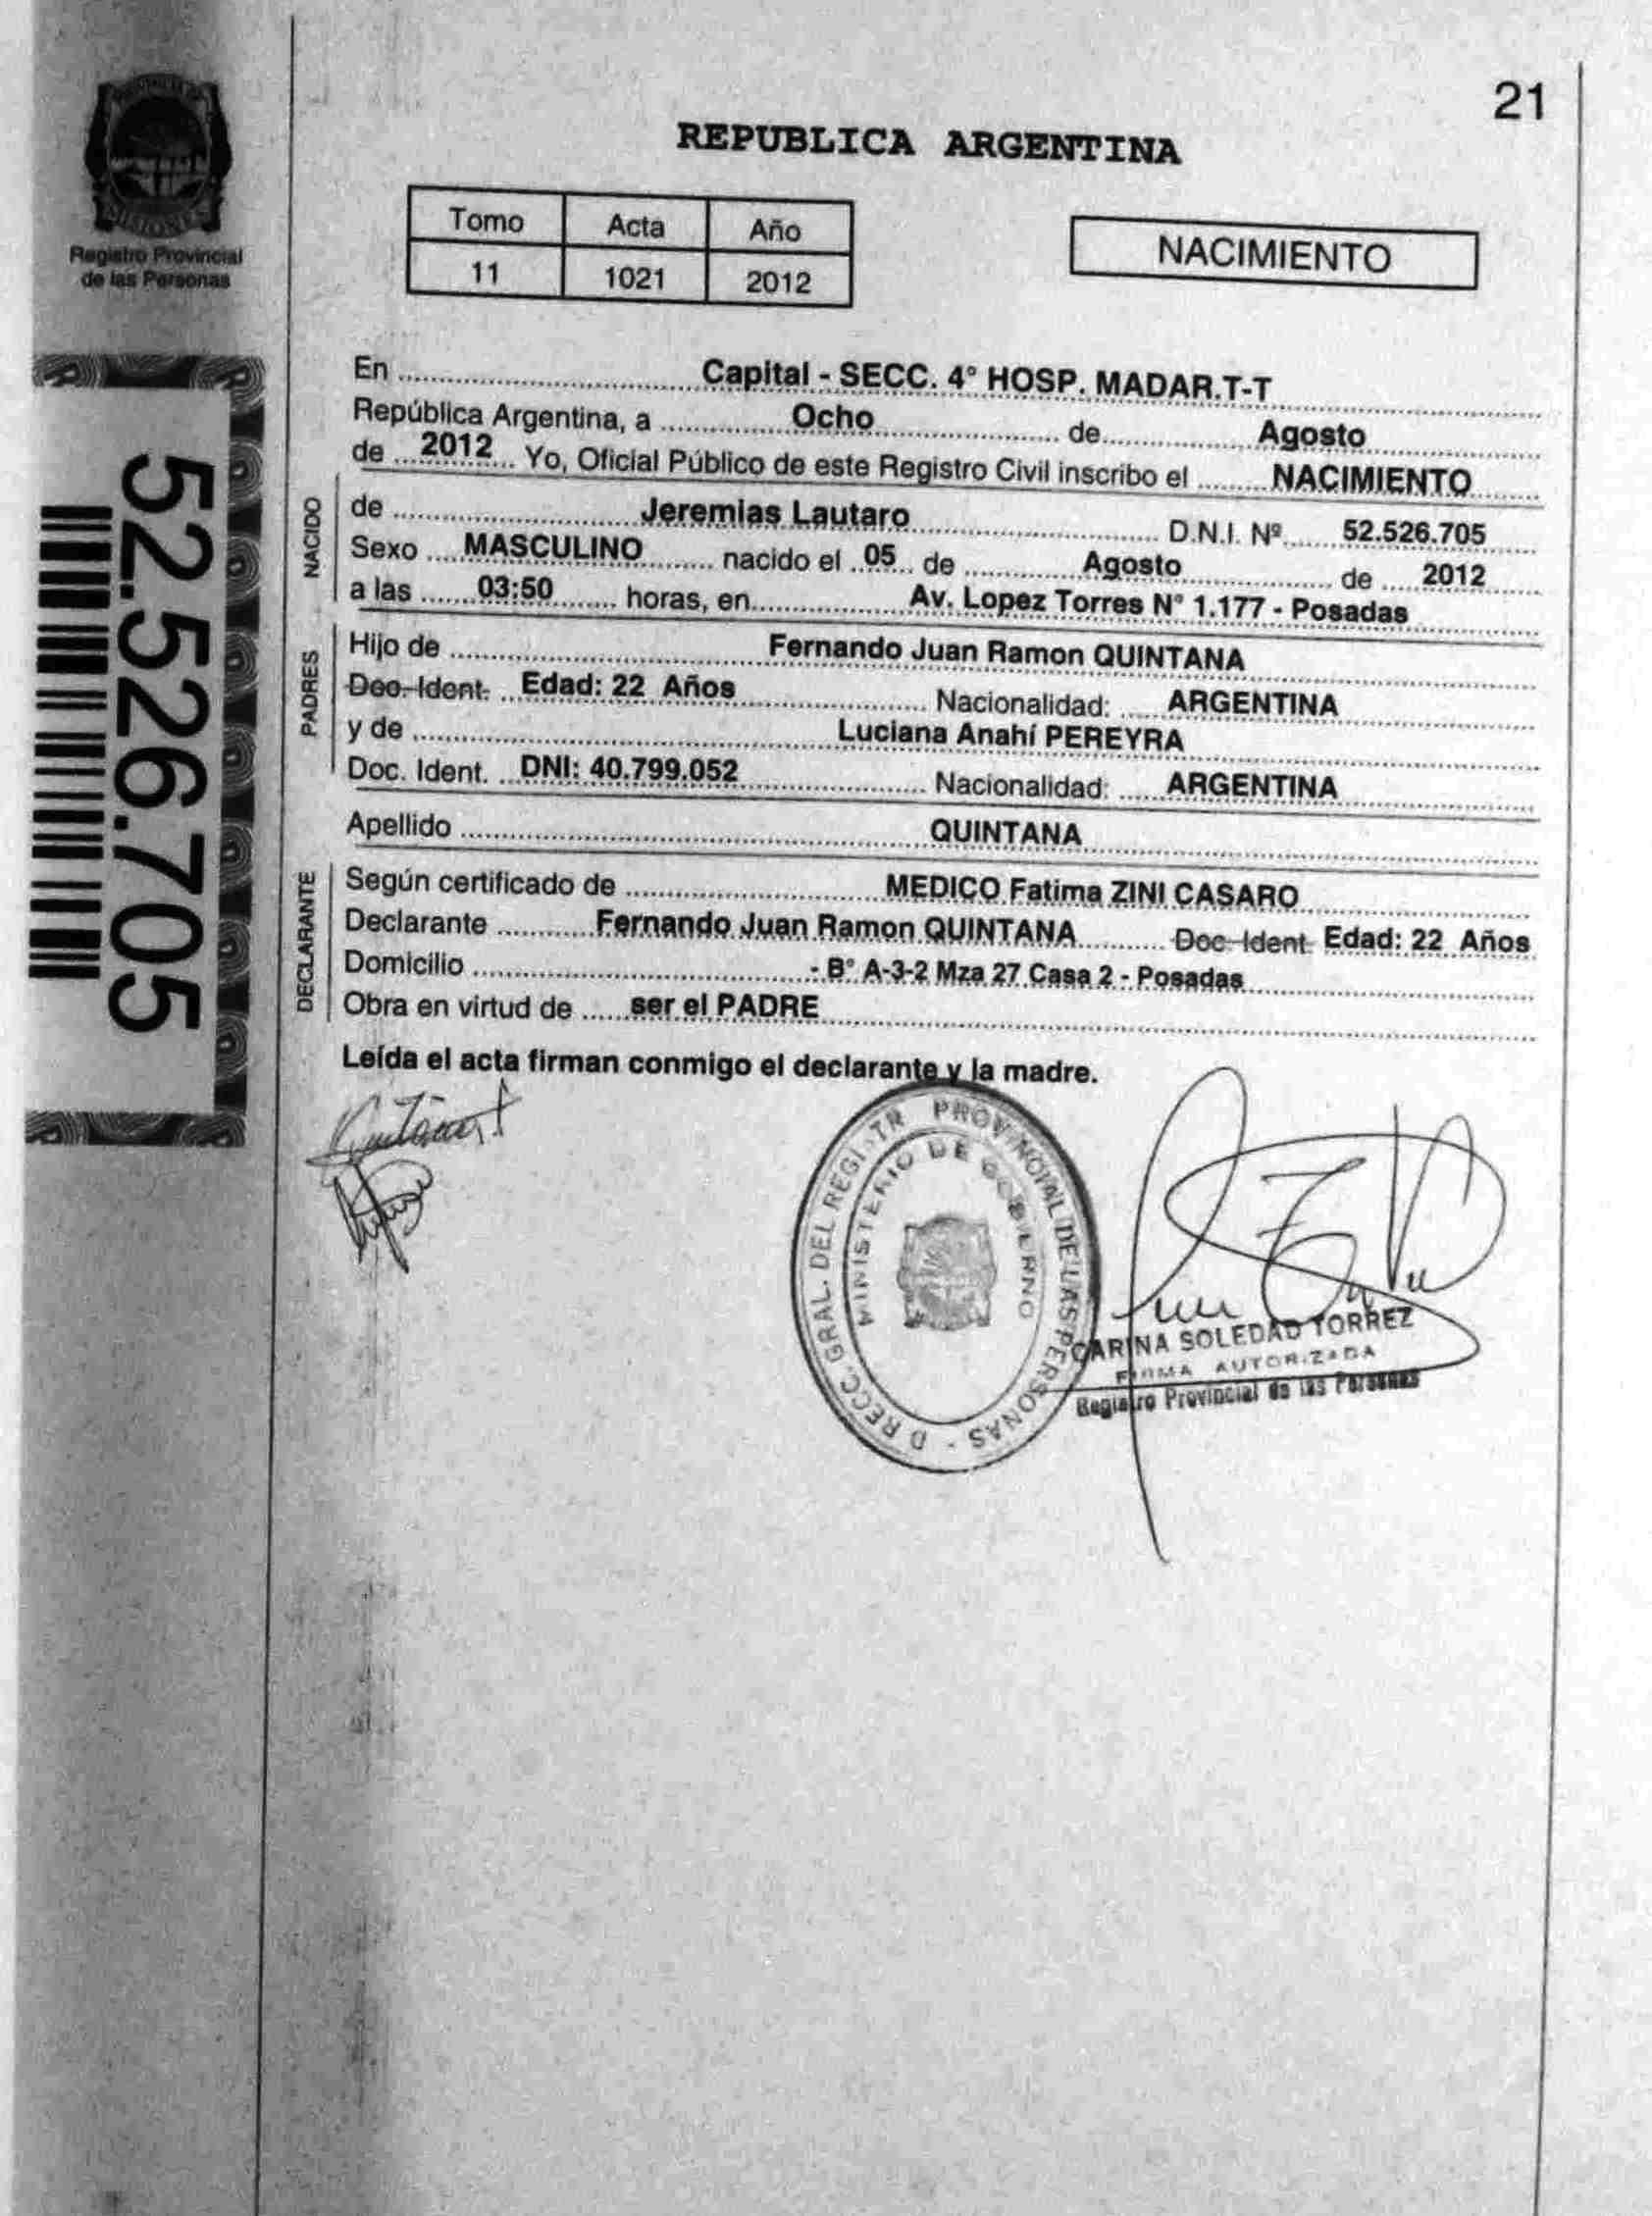 21
REPUBLICA ARGENTINA
Registro Provincial
de las Personas
Tomo Acta Año
11 1021 2012
NACIMIENTO
52.526.705
En Capital - SECC. 4° HOSP. MADAR.T-T
República Argentina, a Ocho de Agosto
de 2012 Yo, Oficial Público de este Registro Civil inscribo el NACIMIENTO
NACIDO
de Jeremias Lautaro D.N.I. Nº 52.526.705
Sexo MASCULINO nacido el 05 de Agosto de 2012
a las 03:50 horas, en Av. Lopez Torres N° 1.177 - Posadas
PADRES
Hijo de Fernando Juan Ramon QUINTANA
Doc. Ident. Edad: 22 Años Nacionalidad: ARGENTINA
y de Luciana Anahí PEREYRA
Doc. Ident. DNI: 40.799.052 Nacionalidad: ARGENTINA
Apellido QUINTANA
DECLARANTE
Según certificado de MEDICO Fatima ZINI CASARO
Declarante Fernando Juan Ramon QUINTANA Doc. Ident. Edad: 22 Años
Domicilio - B° A-3-2 Mza 27 Casa 2 - Posadas
Obra en virtud de ser el PADRE
Leída el acta firman conmigo el declarante y la madre.
D RECC. GRAL. DEL REGISTR PROVINCIAL DE LAS PERSONAS -
MINISTERIO DE GOBIERNO
CARINA SOLEDAD TORREZ
FIRMA AUTORIZADA
Registro Provincial de las Personas